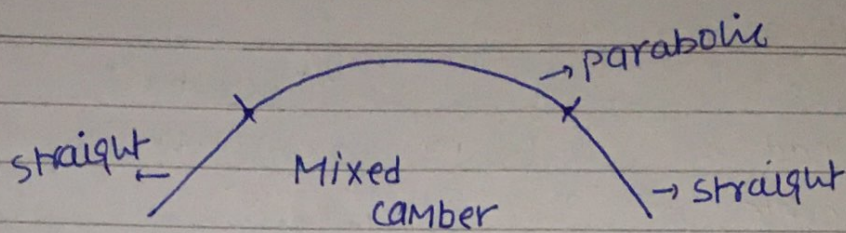 → parabolic
straignt ←
Mixed
camber
→ straignt